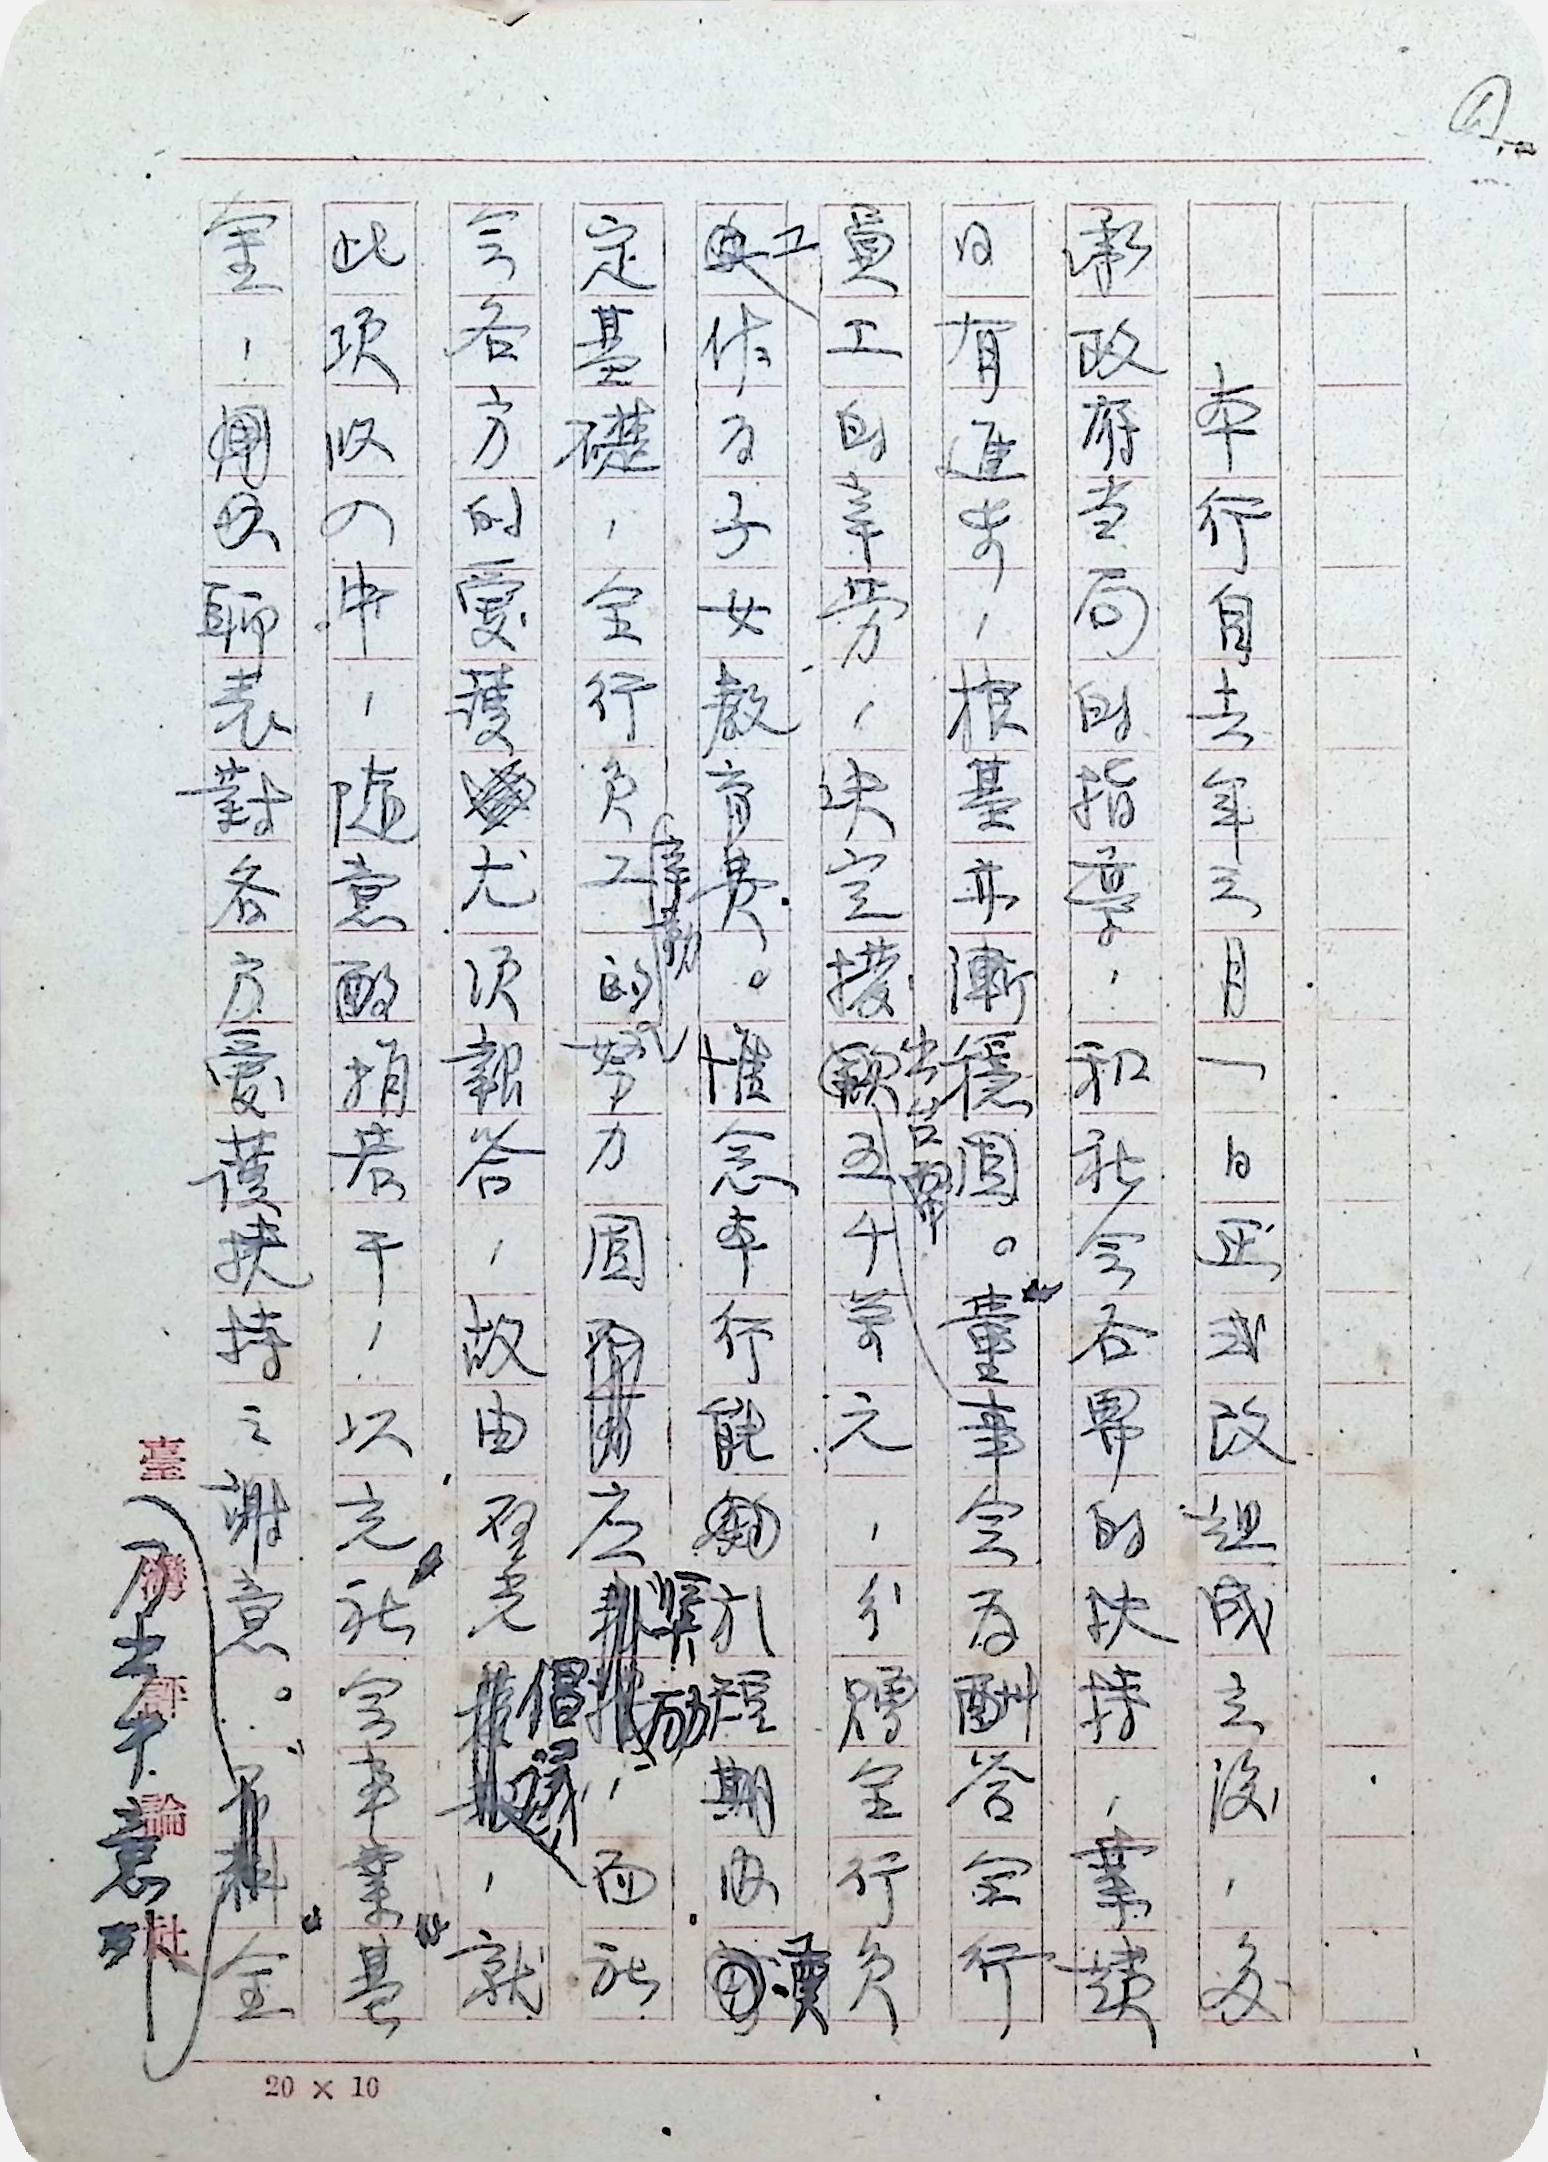 本行自去年三月一日正式改組成立後，多
承政府当局的指導，和社会各界的扶持，業蹟
日有進步，根基亦漸穩固。董事会为酬答全行
員工的辛劳，決定撥出台幣五千萬元，分贈全行员
工作为子女教育費。惟念本行能夠於短期内奠
定基礎，全行员工的辛勤努力固应奨励，而社
会各方的爱護尤须報答，故由倡議，就
此项收入中，随意酌捐若干，以充"社会事業"基
金，用以聊表對各方爱護扶持之謝意。全
臺灣評論社
20 × 10